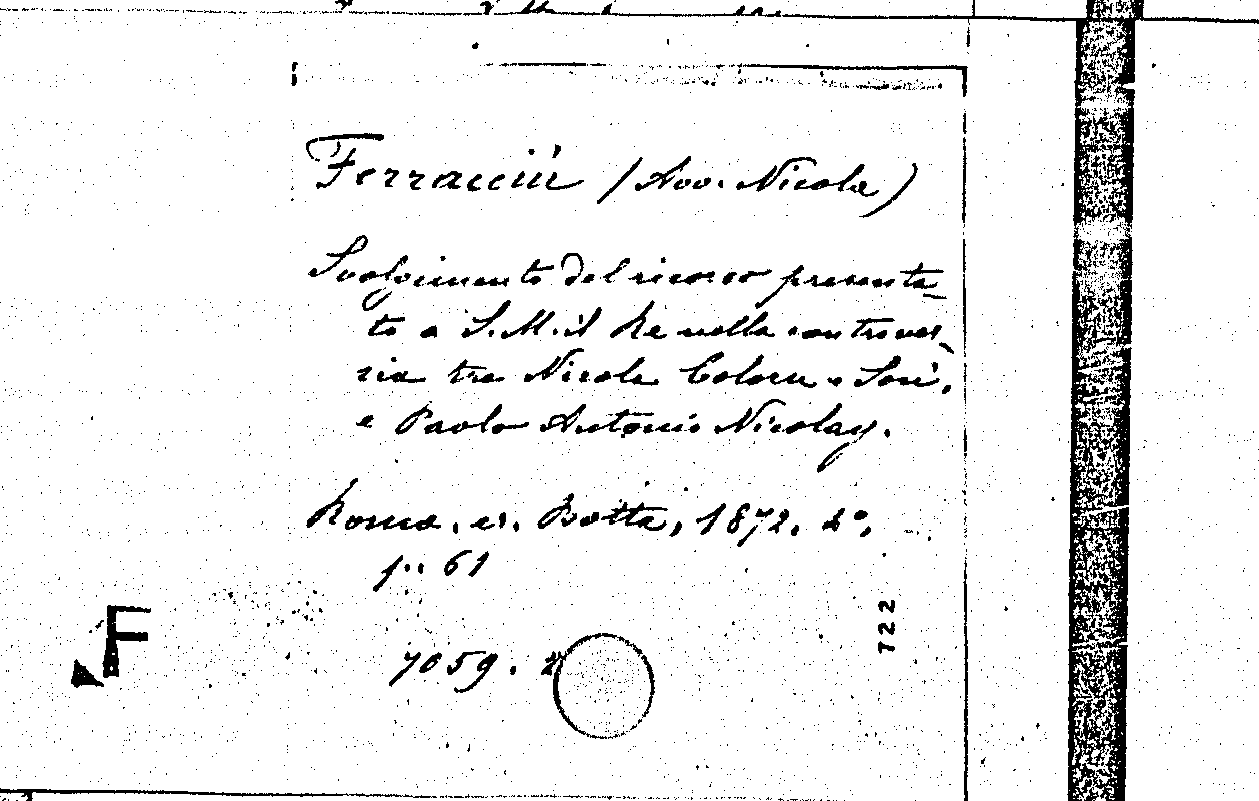 Ferracciù (Avv. Nicola)
Svolgimento del ricorso presenta-
to a S. M. il Re nella controver-
sia tra Nicola Coloru e Sori,
e Paolo Antonio Nicolay.
Roma, er. Botta, 1872. 4°,
p. 61
F
7059. 2
722